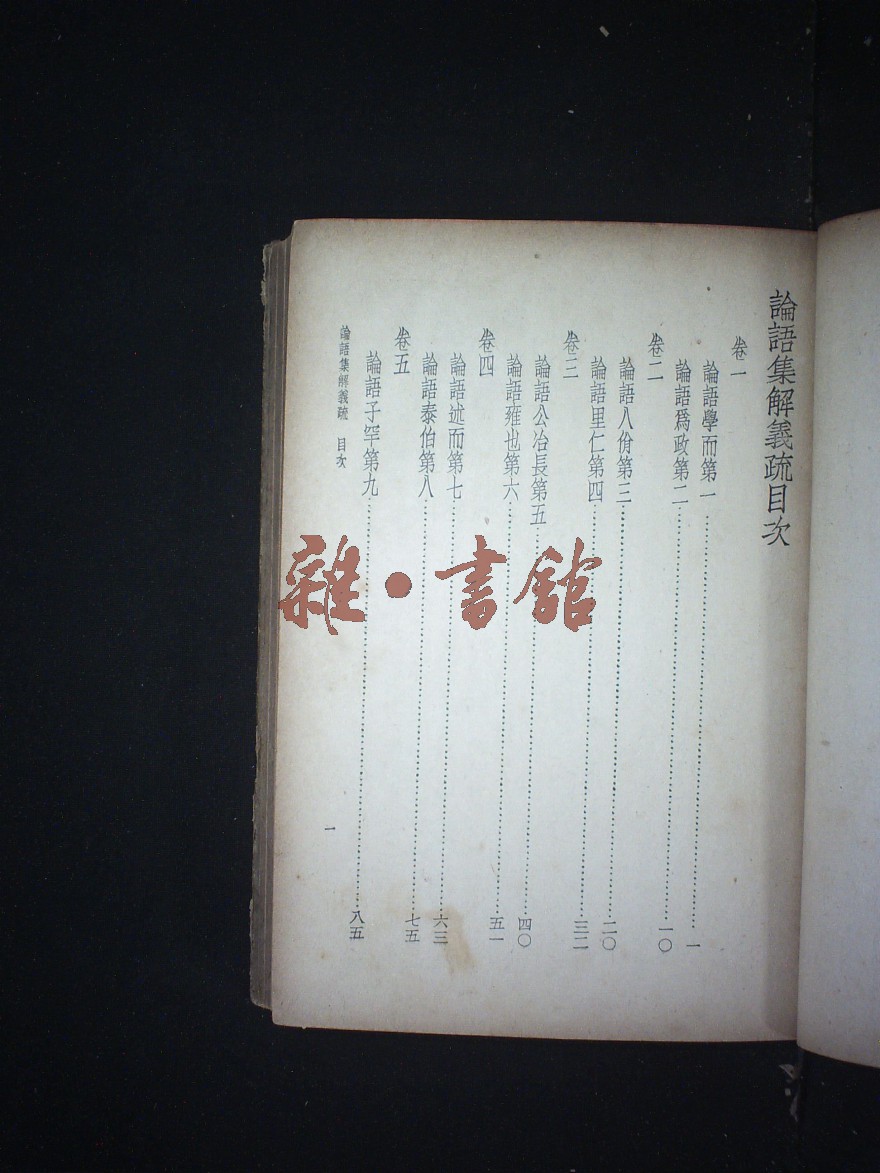 論語集解義疏目次
卷一
論語學而第一……一
論語爲政第二……一〇
卷二
論語八佾第三……二〇
論語里仁第四……三二
卷三
論語公冶長第五……四〇
論語雍也第六……五一
卷四
論語述而第七……六三
論語泰伯第八……七五
卷五
論語子罕第九……八五
論語集解義疏 目次
一
雜·書館